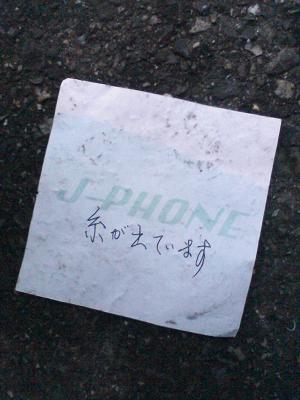 J-PHONE
糸が出ています